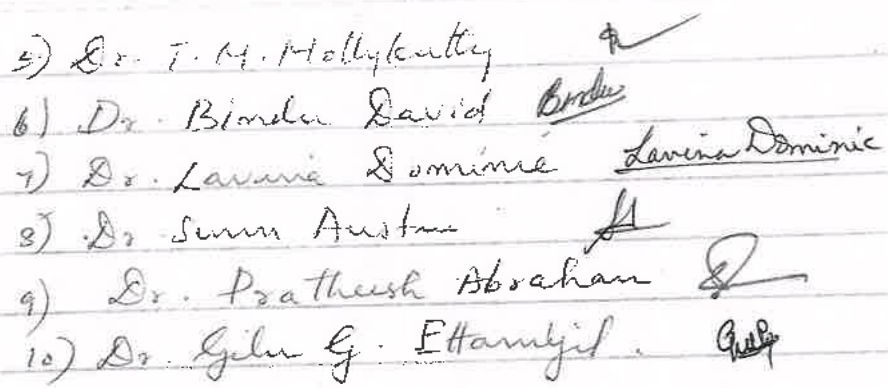 5) Dr. T. M. Mollykutty
6) Dr. Bindu David Bindu
7) Dr. Lavina Dominic Lavina Dominic
8) Dr Austin
9) Dr. Pratheesh Abraham
10) Dr. G.